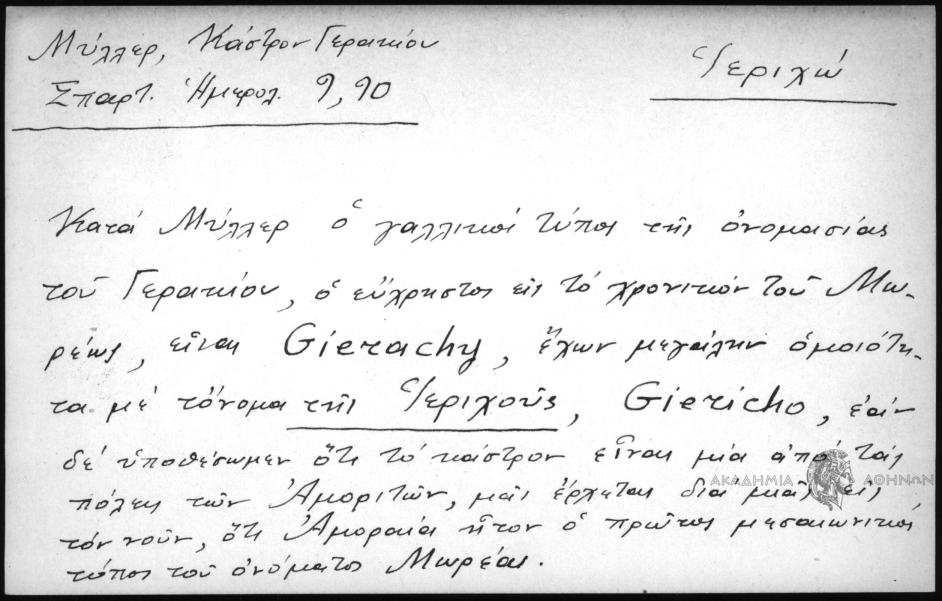 Μύλλερ, Κάστρον Γερακίου
Σπαρτ. Ἡμερολ. 9,90
Ἱεριχώ
Κατά Μύλλερ ὁ γαλλικός τύπος τῆς ὀνομασίας
τοῦ Γερακίου, ὁ εὔχρηστος εἰς τό χρονικόν τοῦ Μω-
ρέως, εἶναι Gierachy, ἔχων μεγάλην ὁμοιότη-
τα μέ τὄνομα τῆς Ἱεριχοῦς, Giericho, ἐάν
δέ ὑποθέσωμεν ὅτι τό κάστρον εἶναι μία ἀπό τάς
πόλεις τῶν Ἀμοριτῶν, μᾶς ἔρχεται διά μιᾶς εἰς
τόν νοῦν, ὅτι Ἀμοραία ἦτον ὁ πρῶτος μεσαιωνικός
τύπος τοῦ ὀνόματος Μωρέας.
ΑΚΑΔΗΜΙΑ ΑΘΗΝΩΝ